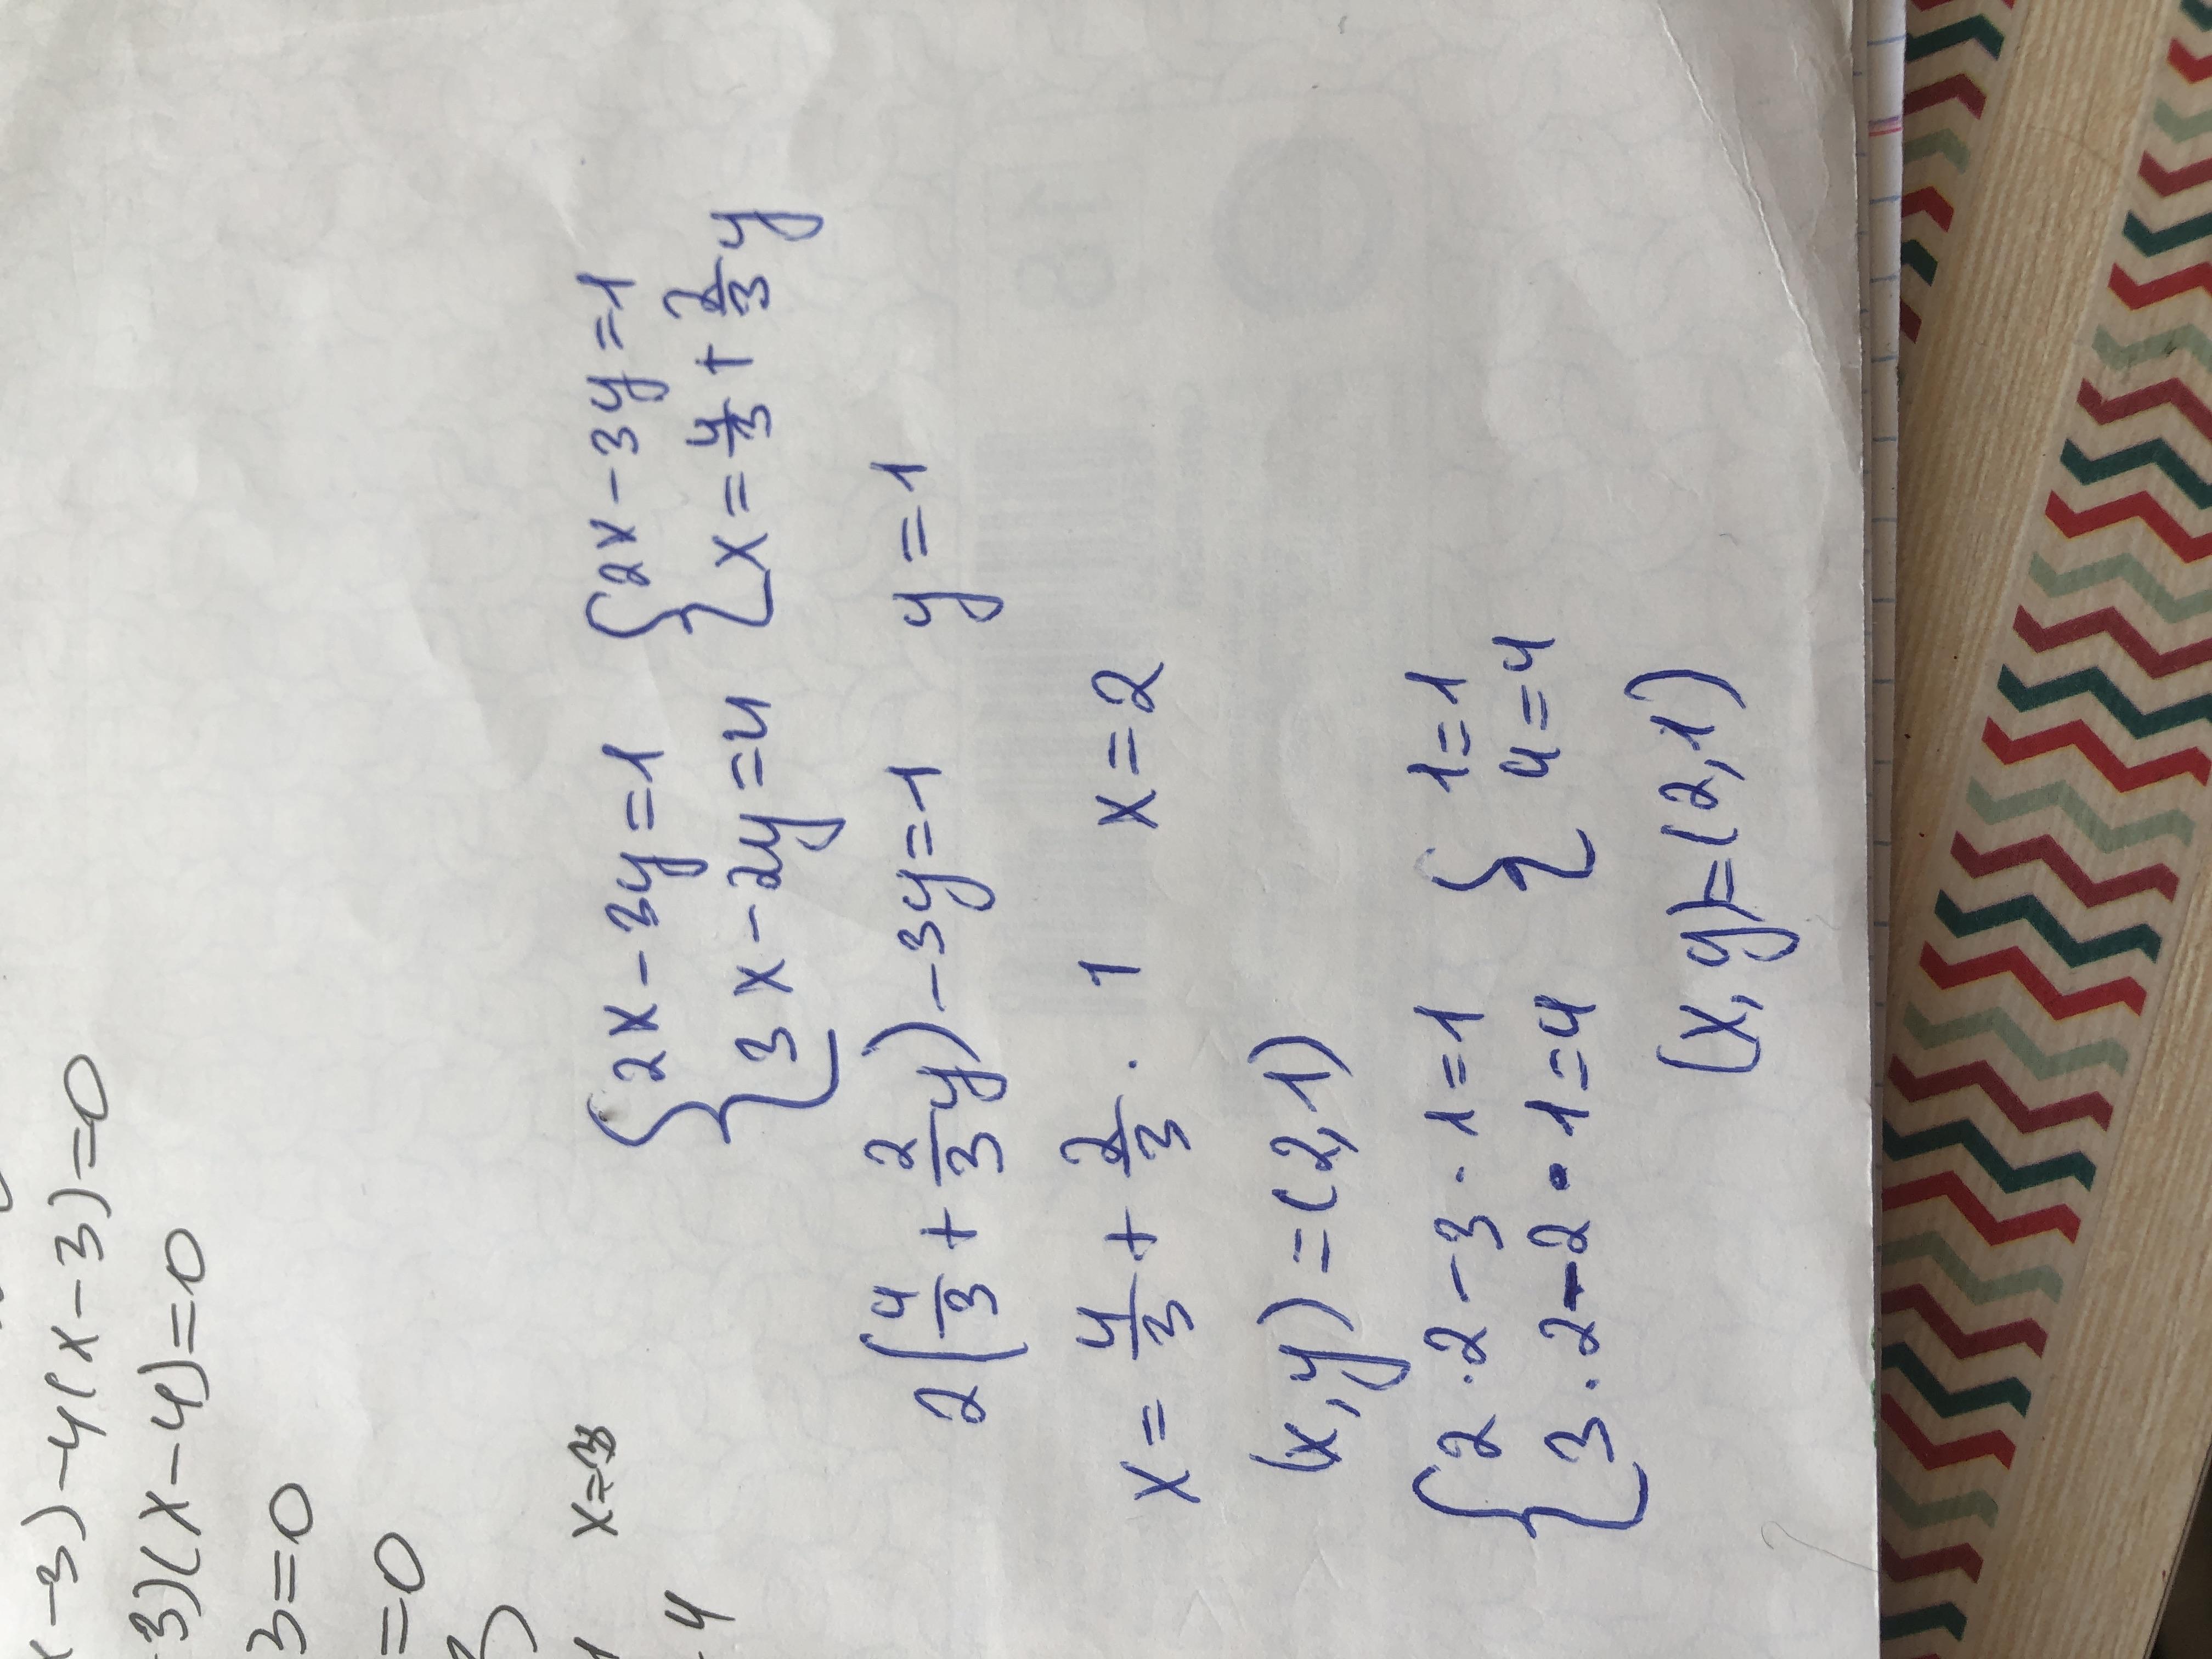 x-3)-4(x-3)=0
-3)(x-4)=0
3=0
=0
3
x=3
-4
{2x-3y=1 {2x-3y=1
{3x-2y=4 {x=4/3+2/3y
2(4/3+2/3y)-3y=1 y=1
x=4/3+2/3·1 x=2
(x,y)=(2,1)
{2·2-3·1=1 {1=1
{3·2-2·1=4 {4=4
(x,y)=(2,1)